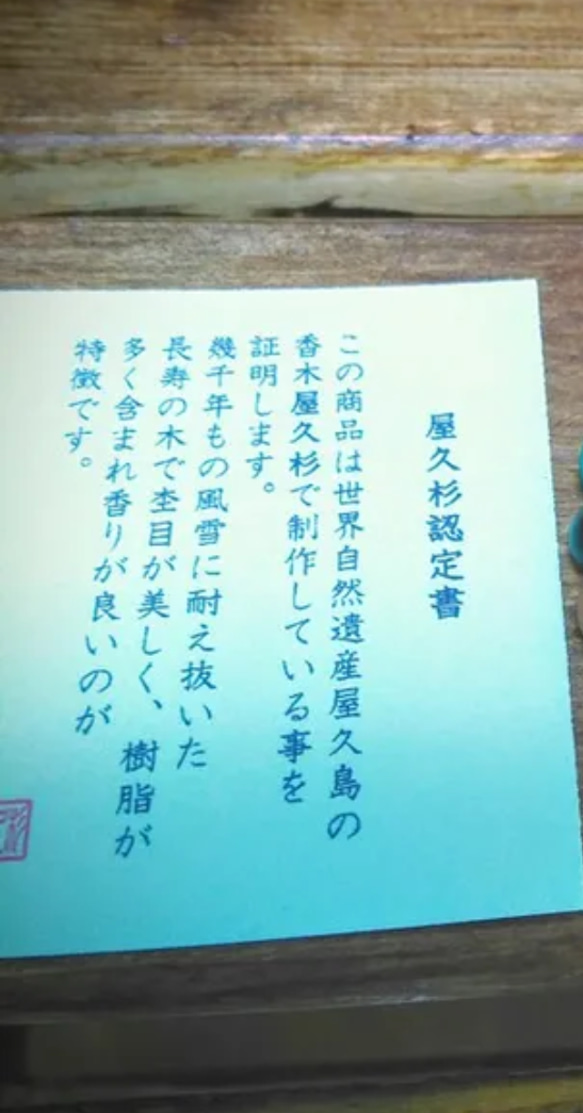 屋久杉認定書
この商品は世界自然遺産屋久島の
香木屋久杉で制作している事を
証明します。
幾千年もの風雪に耐え抜いた
長寿の木で杢目が美しく、樹脂が
多く含まれ香りが良いのが
特徴です。